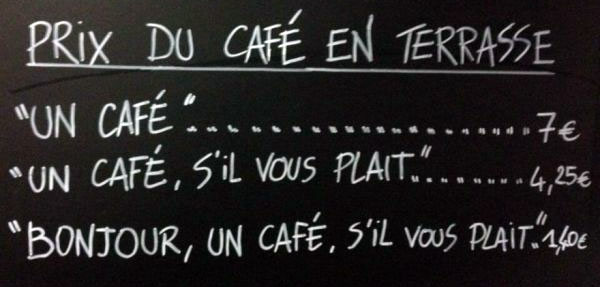 PRIX DU CAFÉ EN TERRASSE
"UN CAFÉ"........................7€
"UN CAFÉ, S'IL VOUS PLAIT."..........4,25€
"BONJOUR, UN CAFÉ, S'IL VOUS PLAIT."..1,40€